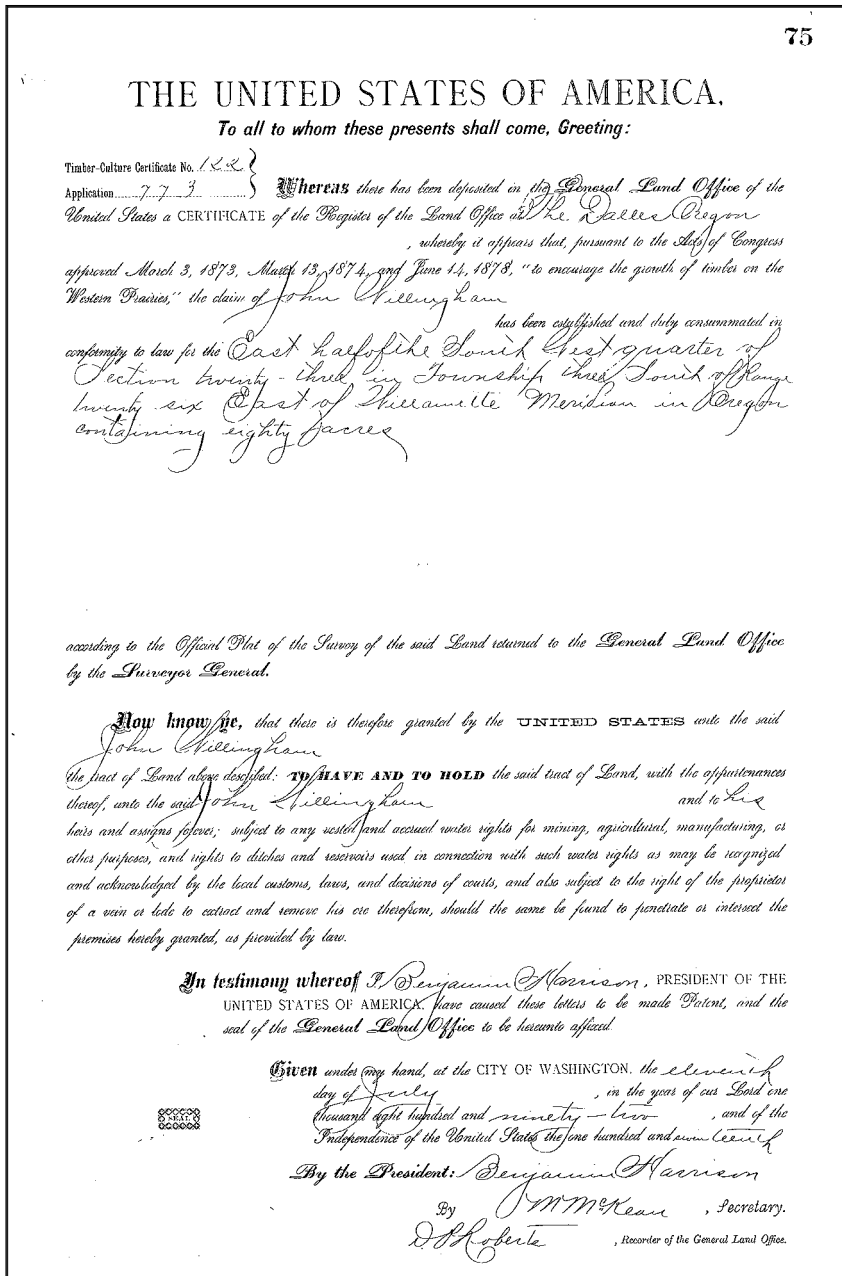 75
THE UNITED STATES OF AMERICA,
To all to whom these presents shall come, Greeting:
Timber-Culture Certificate No. 122
Application 773
Whereas there has been deposited in the General Land Office of the
United States a CERTIFICATE of the Register of the Land Office at The Dalles Oregon
, whereby it appears that, pursuant to the Acts of Congress
approved March 3, 1873, March 13, 1874, and June 14, 1878, "to encourage the growth of timber on the
Western Prairies," the claim of John Willingham
has been established and duly consummated in
conformity to law for the East half of the South West quarter of
Section twenty-three in Township three South of Range
twenty six East of Willamette Meridian in Oregon
containing eighty acres
according to the Official Plat of the Survey of the said Land returned to the General Land Office
by the Surveyor General.
Now know ye, that there is therefore granted by the UNITED STATES unto the said
John Willingham
the tract of Land above described: TO HAVE AND TO HOLD the said tract of Land, with the appurtenances
thereof, unto the said John Willingham and to his
heirs and assigns forever; subject to any vested and accrued water rights for mining, agricultural, manufacturing, or
other purposes, and rights to ditches and reservoirs used in connection with such water rights as may be recognized
and acknowledged by the local customs, laws, and decisions of courts, and also subject to the right of the proprietor
of a vein or lode to extract and remove his ore therefrom, should the same be found to penetrate or intersect the
premises hereby granted, as provided by law.
In testimony whereof I, Benjamin Harrison, PRESIDENT OF THE
UNITED STATES OF AMERICA, have caused these letters to be made Patent, and the
seal of the General Land Office to be hereunto affixed.
Given under my hand, at the CITY OF WASHINGTON, the eleventh
day of July , in the year of our Lord one
thousand eight hundred and ninety-two , and of the
Independence of the United States the one hundred and seventeenth
SEAL
By the President: Benjamin Harrison
By M McKean , Secretary.
D P Roberts , Recorder of the General Land Office.